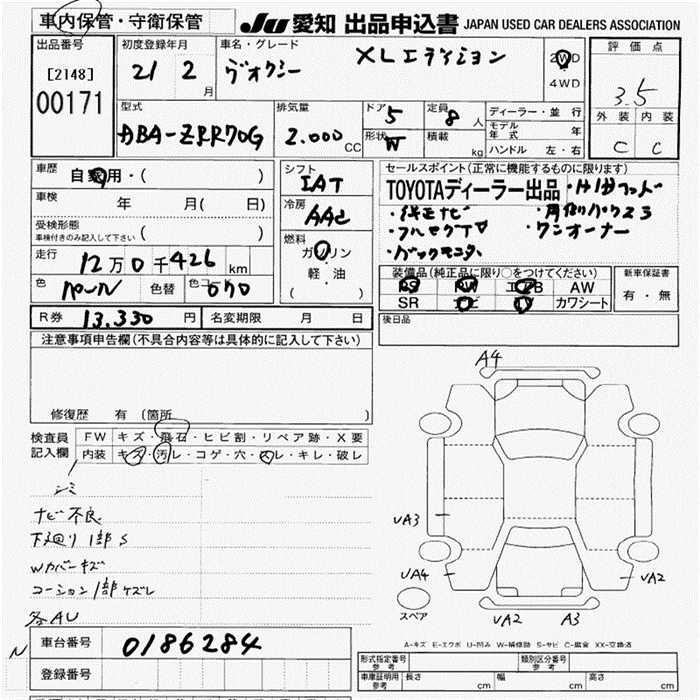 車内保管・守衛保管
JU 愛知 出品申込書 JAPAN USED CAR DEALERS ASSOCIATION
出品番号
[2148]
00171
初度登録年月
21 2 月
車名・グレード
ヴオクシー XLエディション
2WD
4WD
評価点
3.5
外装 内装
C C
型式
DBA-ZRR70G
排気量
2.000 CC
ドア 5
形状 W
定員 8 人
積載 kg
ディーラー・並行
モデル年式 年
ハンドル 左・右
車歴
自家用・( )
車検 年 月( 日)
受検形態
車検付きのみ記入して下さい ( )
走行 12万0千426 km
色 パール 色替 色コード 070
シフト
IAT
冷房
AAC
燃料
ガソリン
軽・油
( )
セールスポイント(正常に機能するものに限ります)
TOYOTAディーラー出品
・純正ナビ
・フルセグTV ・ワンオーナー
・バックモニター
装備品(純正品に限り○をつけてください)
PS PW エアB AW
SR ナビ TV カワシート
新車保証書
有・無
R券 13.330 円 名変期限 月 日
後日品
注意事項申告欄(不具合内容等は具体的に記入して下さい)
修復歴 有 (箇所 )
検査員
記入欄
FW キズ・飛石・ヒビ割・リペア跡・X要
内装 キズ・汚レ・コゲ・穴・スレ・キレ・破レ
シミ
ナビ不良
下廻り1部S
Wカバーキズ
コーション1部ケズレ
各AU
A4
UA3
UA4
UA2
UA2
A3
スペア
A-キズ E-エクボ U-凹み W-補修跡 S-サビ C-腐食 XX-交換済
N
車台番号 0186284
登録番号
形式指定番号
参考
類別区分番号
参考
車庫証明用
参考
長さ cm 幅 cm 高さ cm